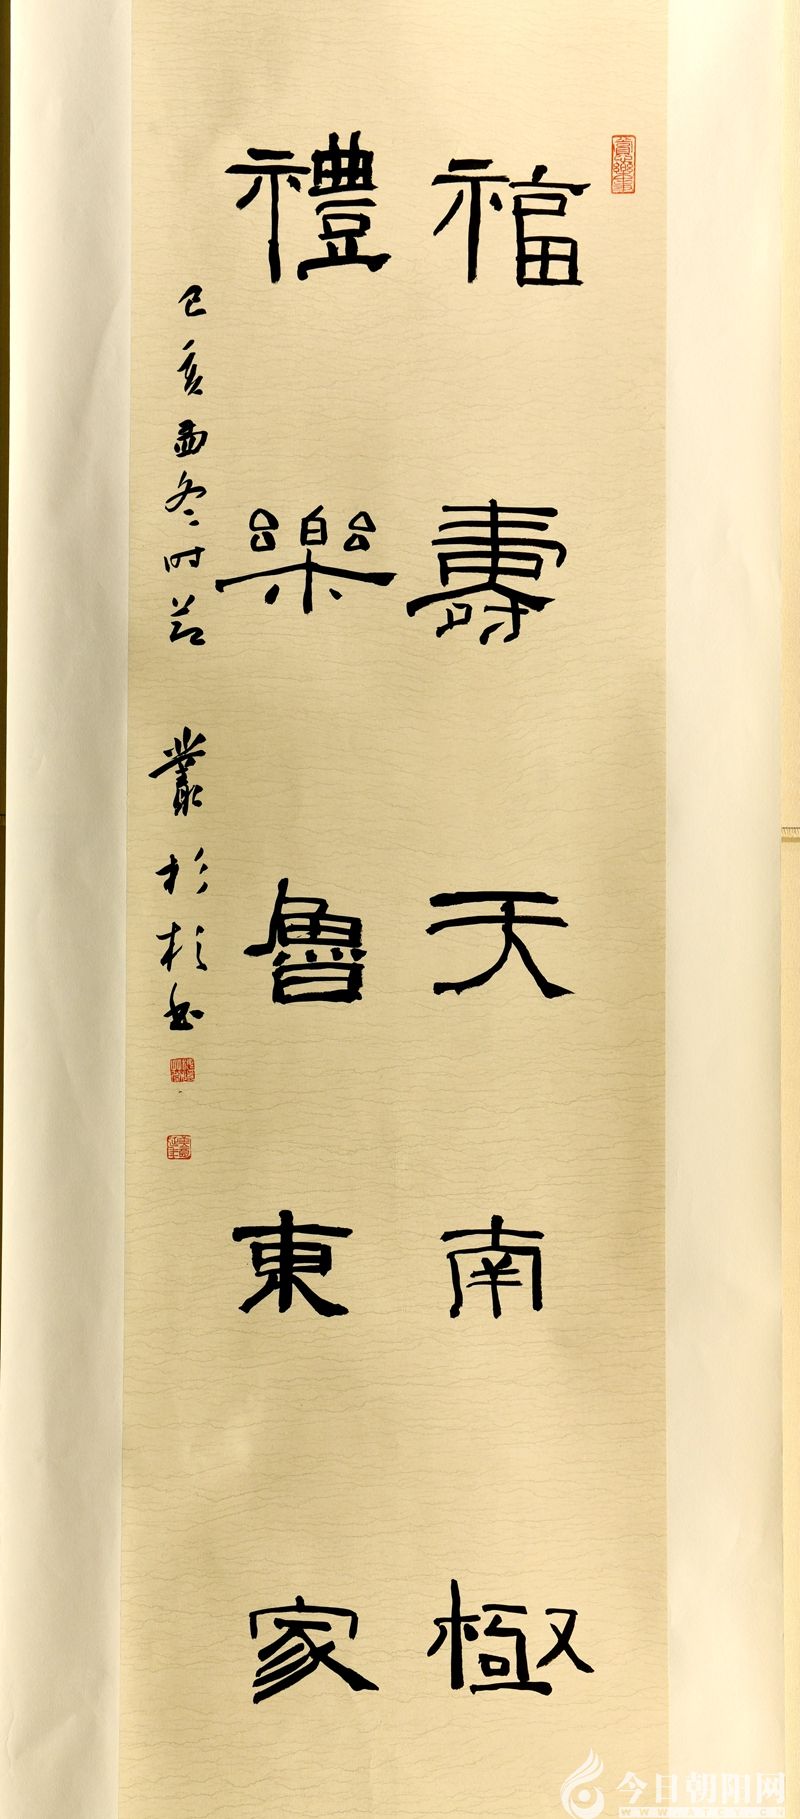 福壽天南極
禮樂魯東家
己亥西冬时节
叢杉杉书
今日朝阳网